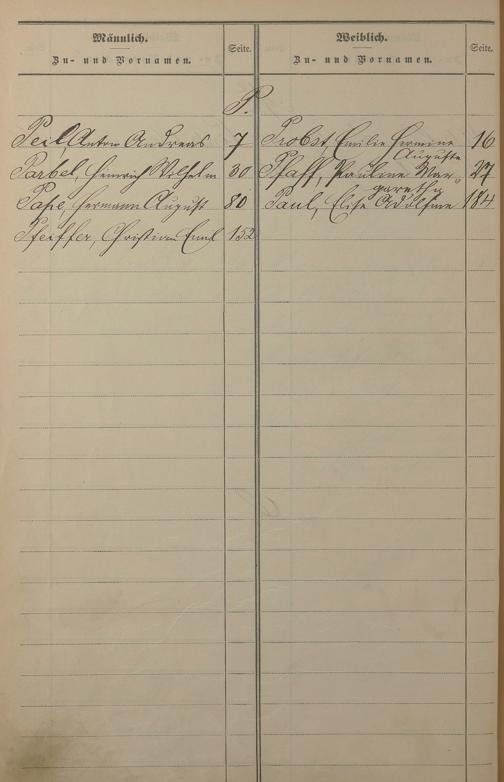 Männlich.
Zu- und Vornamen.
Seite.
Weiblich.
Zu- und Vornamen.
Seite.
P.
Peil Anton Andreas 7
Parbel, Heinrich Wilhelm 30
Pape, Hermann August 80
Pfeiffer, Christian Emil 152
Probst, Emilie Hermine 16
Auguste
Pfaff, Pauline Mar- 27
garethe
Paul, Elise Adolfine 184